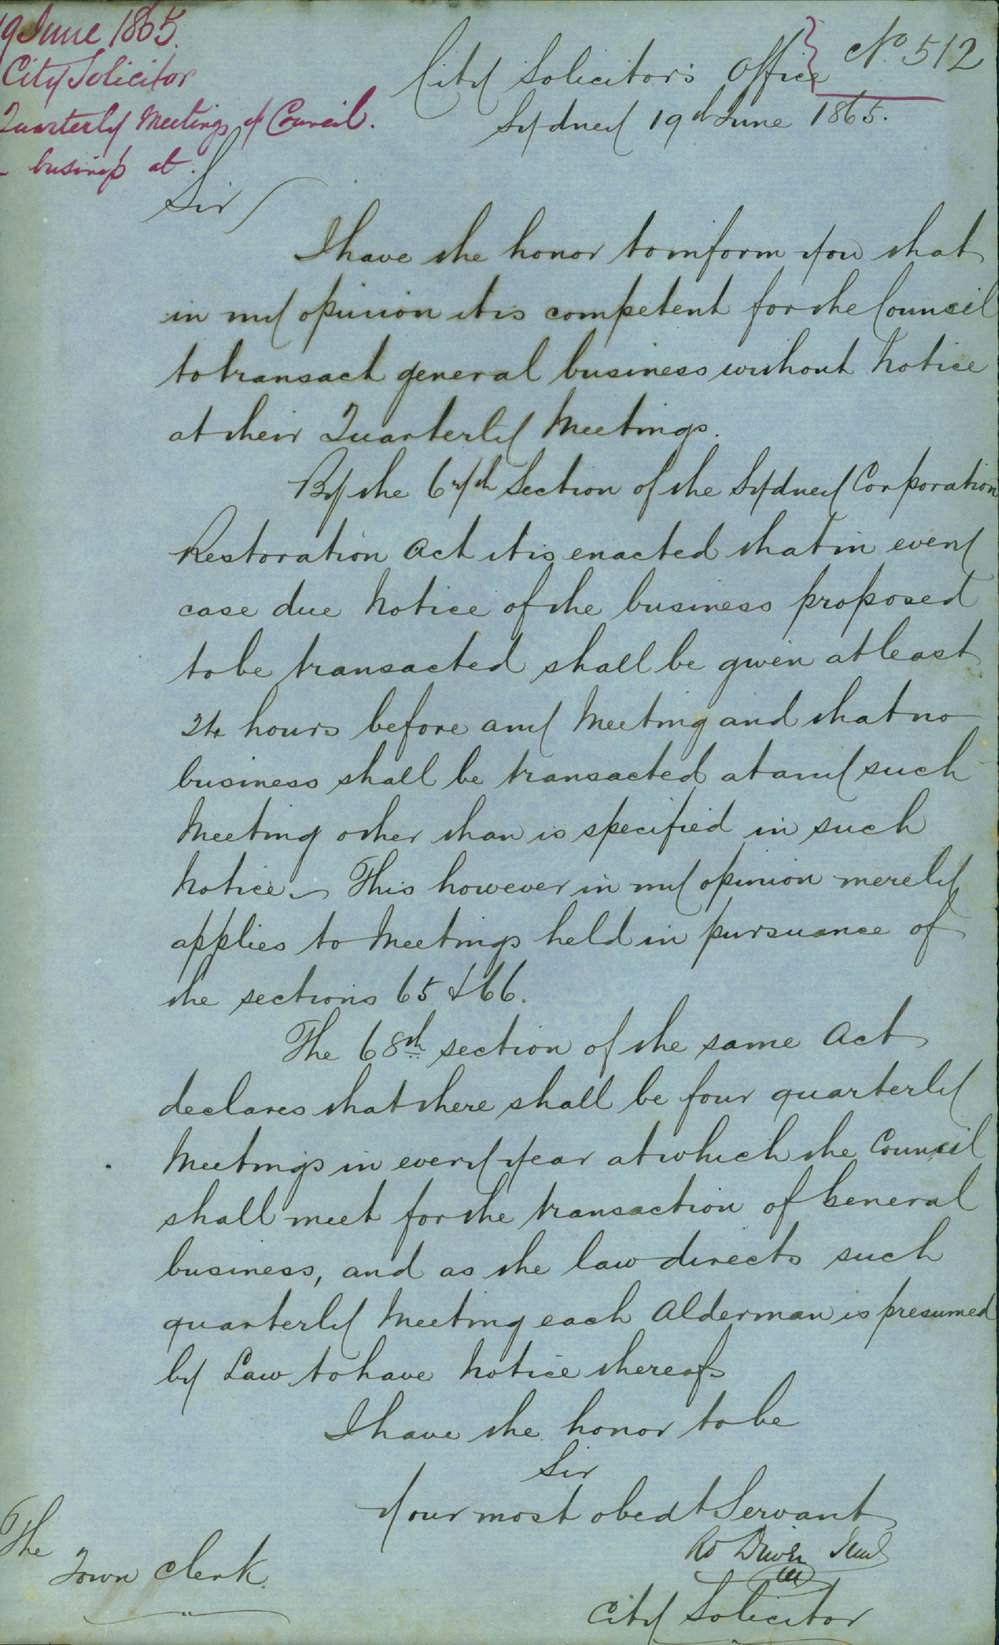 19 June 1865.
City Solicitor
Quarterly Meetings of Council.
— business at.
No. 512
City Solicitor's Office
Sydney 19th June 1865.
Sir
I have the honor to inform you that
in my opinion it is competent for the Council
to transact general business without Notice
at their Quarterly Meetings.
By the 67th Section of the Sydney Corporation
Restoration Act it is enacted that in every
case due Notice of the business proposed
to be transacted shall be given at least
24 hours before any Meeting and that no
business shall be transacted at any such
Meeting other than is specified in such
Notice. This however in my opinion merely
applies to Meetings held in pursuance of
the sections 65 & 66.
The 68th section of the same Act
declares that there shall be four quarterly
Meetings in every year at which the Council
shall meet for the transaction of General
business, and as the law directs such
quarterly Meeting each Alderman is presumed
by Law to have Notice thereof
I have the honor to be
Sir
Your most obedt Servant
Ro Driver Junr
City Solicitor
The
Town Clerk.